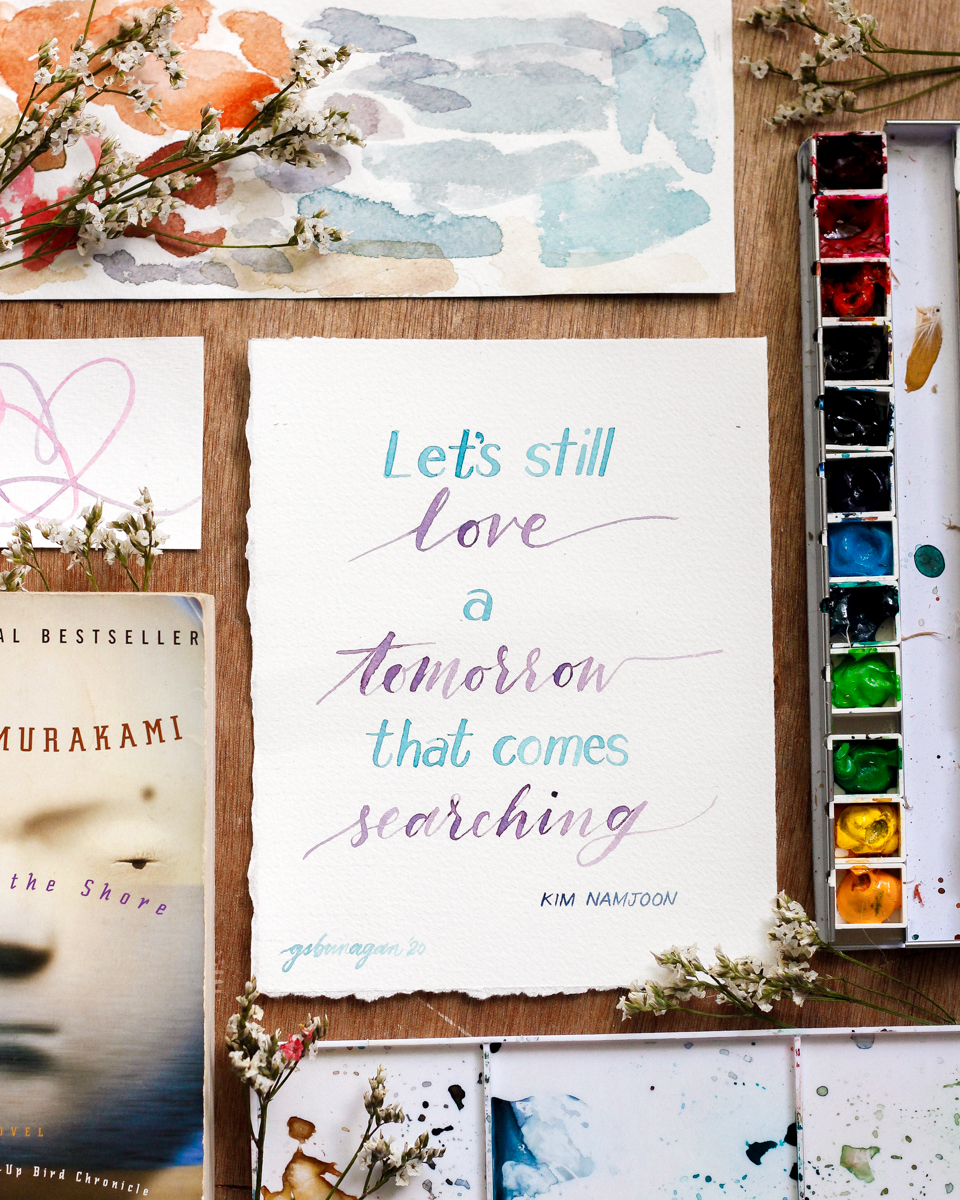 Let's still
love
a
tomorrow
that comes
searching
KIM NAMJOON
gsbunagan '20
AL BESTSELLER
MURAKAMI
the Shore
OVEL
-Up Bird Chronicle